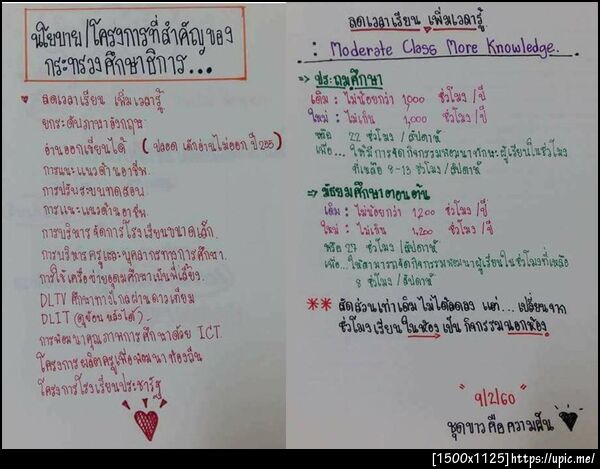 นโยบาย/โครงการที่สำคัญของ
กระทรวงศึกษาธิการ...
ลดเวลาเรียน เพิ่มเวลารู้
ยกระดับภาษาอังกฤษ
อ่านออกเขียนได้ (ปลอดเด็กอ่านไม่ออก ปี 255)
การแนะแนวด้านอาชีพ
การปรับระบบทดสอบ
การแนะแนวด้านอาชีพ
การบริหารจัดการโรงเรียนขนาดเล็ก
การบริหารครูและบุคลากรทางการศึกษา
การใช้เครือข่ายอุดมศึกษาเป็นพี่เลี้ยง
DLTV ศึกษาทางไกลผ่านดาวเทียม
DLIT (ดูย้อนหลังได้)
การพัฒนาคุณภาพการศึกษาด้วย ICT
โครงการผลิตครูเพื่อพัฒนาท้องถิ่น
โครงการโรงเรียนประชารัฐ
ลดเวลาเรียน เพิ่มเวลารู้
: Moderate Class More Knowledge.
=> ประถมศึกษา
เดิม : ไม่น้อยกว่า 1,000 ชั่วโมง/ปี
ใหม่ : ไม่เกิน 1,000 ชั่วโมง/ปี
หรือ 22 ชั่วโมง/สัปดาห์
เพื่อ... ให้มีการจัดกิจกรรมพัฒนาทักษะผู้เรียนในชั่วโมง
ที่เหลือ 8-13 ชั่วโมง/สัปดาห์
=> มัธยมศึกษาตอนต้น
เดิม : ไม่น้อยกว่า 1,200 ชั่วโมง/ปี
ใหม่ : ไม่เกิน 1,200 ชั่วโมง/ปี
หรือ 27 ชั่วโมง/สัปดาห์
เพื่อ... ให้สามารถจัดกิจกรรมพัฒนาผู้เรียนในชั่วโมงที่เหลือ
8 ชั่วโมง/สัปดาห์
** สัดส่วนเท่าเดิม ไม่ได้ลดลง แต่... เปลี่ยนจาก
ชั่วโมงเรียนในห้อง เป็น กิจกรรมนอกห้อง
"9/2/60"
ชุดขาวคือความฝัน
[1500x1125]https://upic.me/